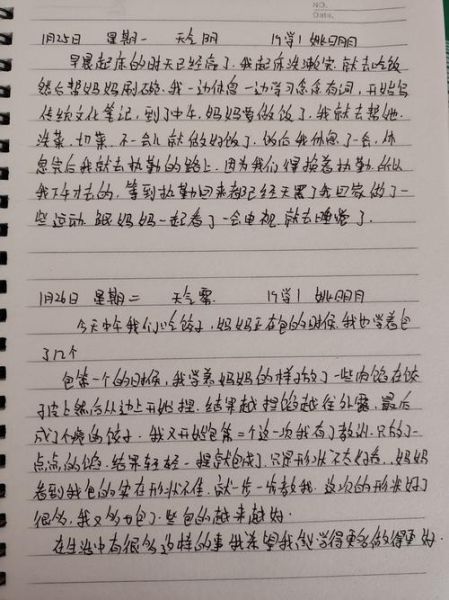 NO.
Date.
1月25日 星期一 天气阴 19学1 姚明月
早晨起床的时天已经亮了.我起床洗漱完.就去吃饭
然后帮妈妈刷碗.我一边休息一边学习念念有词,开始写
传统文化笔记,到了中午,妈妈要做饭了.我就去帮她
洗菜、切菜、不一会儿就做好饭了.饭后我休息了一会,休
息完后我就去执勤的路上.因为我们俩换着执勤.所以
我下午才去的,等到执勤回来都已经天黑了我回家做了一
些运动.跟妈妈一起看了一会电视.就去睡觉了.
1月26日 星期二 天气雾. 19学1 姚明月
今天中午我们吃饺子,妈妈正在包的时候.我也学着包
了几个
包第一个的时候,我学着妈妈的样子放了一些肉馅在饺
子皮上然后从边上开始捏.结果越捏馅越往外露,最后
成了个瘪的饺子.我又开始包第二个这一次我有了教训.只放了一
点点的馅.结果轻轻一捏就包成了.只是形状不太好看..妈妈
看到我包的实在形状不佳.就一步一步教我.这次的形状好了
很多,我又多包了一些包的越来越好.
在生活中有很多这样的事我希望我能学得更多做得更好.